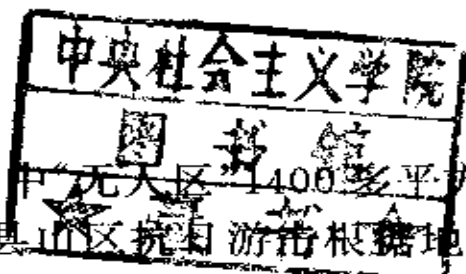 中央社会主义学院
图书馆
中“无人区”1400多平
县山区抗日游击根据地